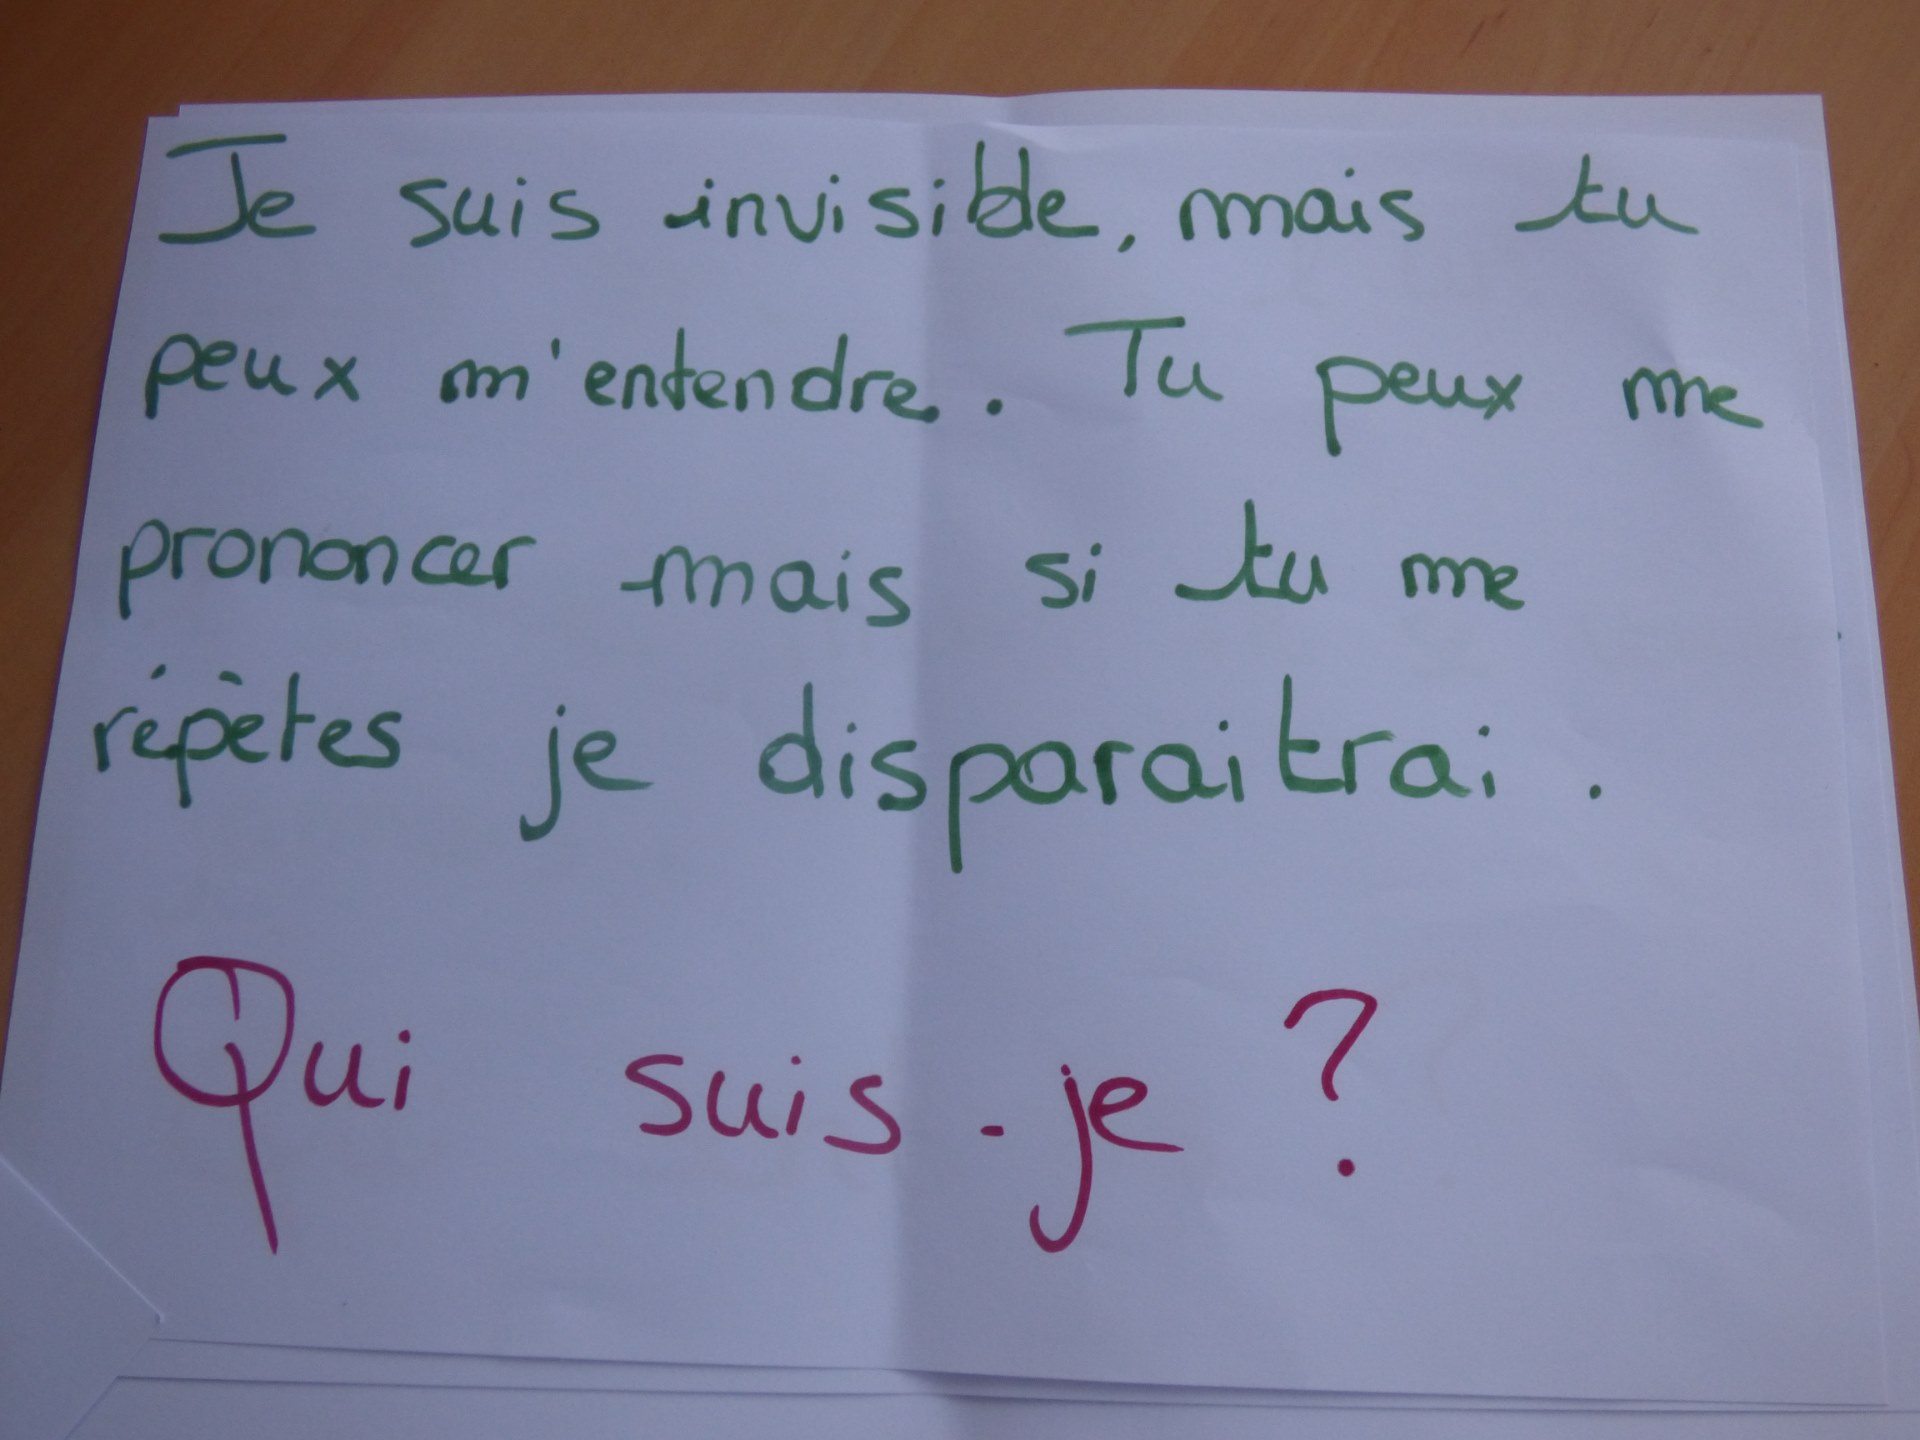 Je suis invisible, mais tu
peux m'entendre. Tu peux me
prononcer mais si tu me
répètes je disparaitrai.
Qui suis-je ?